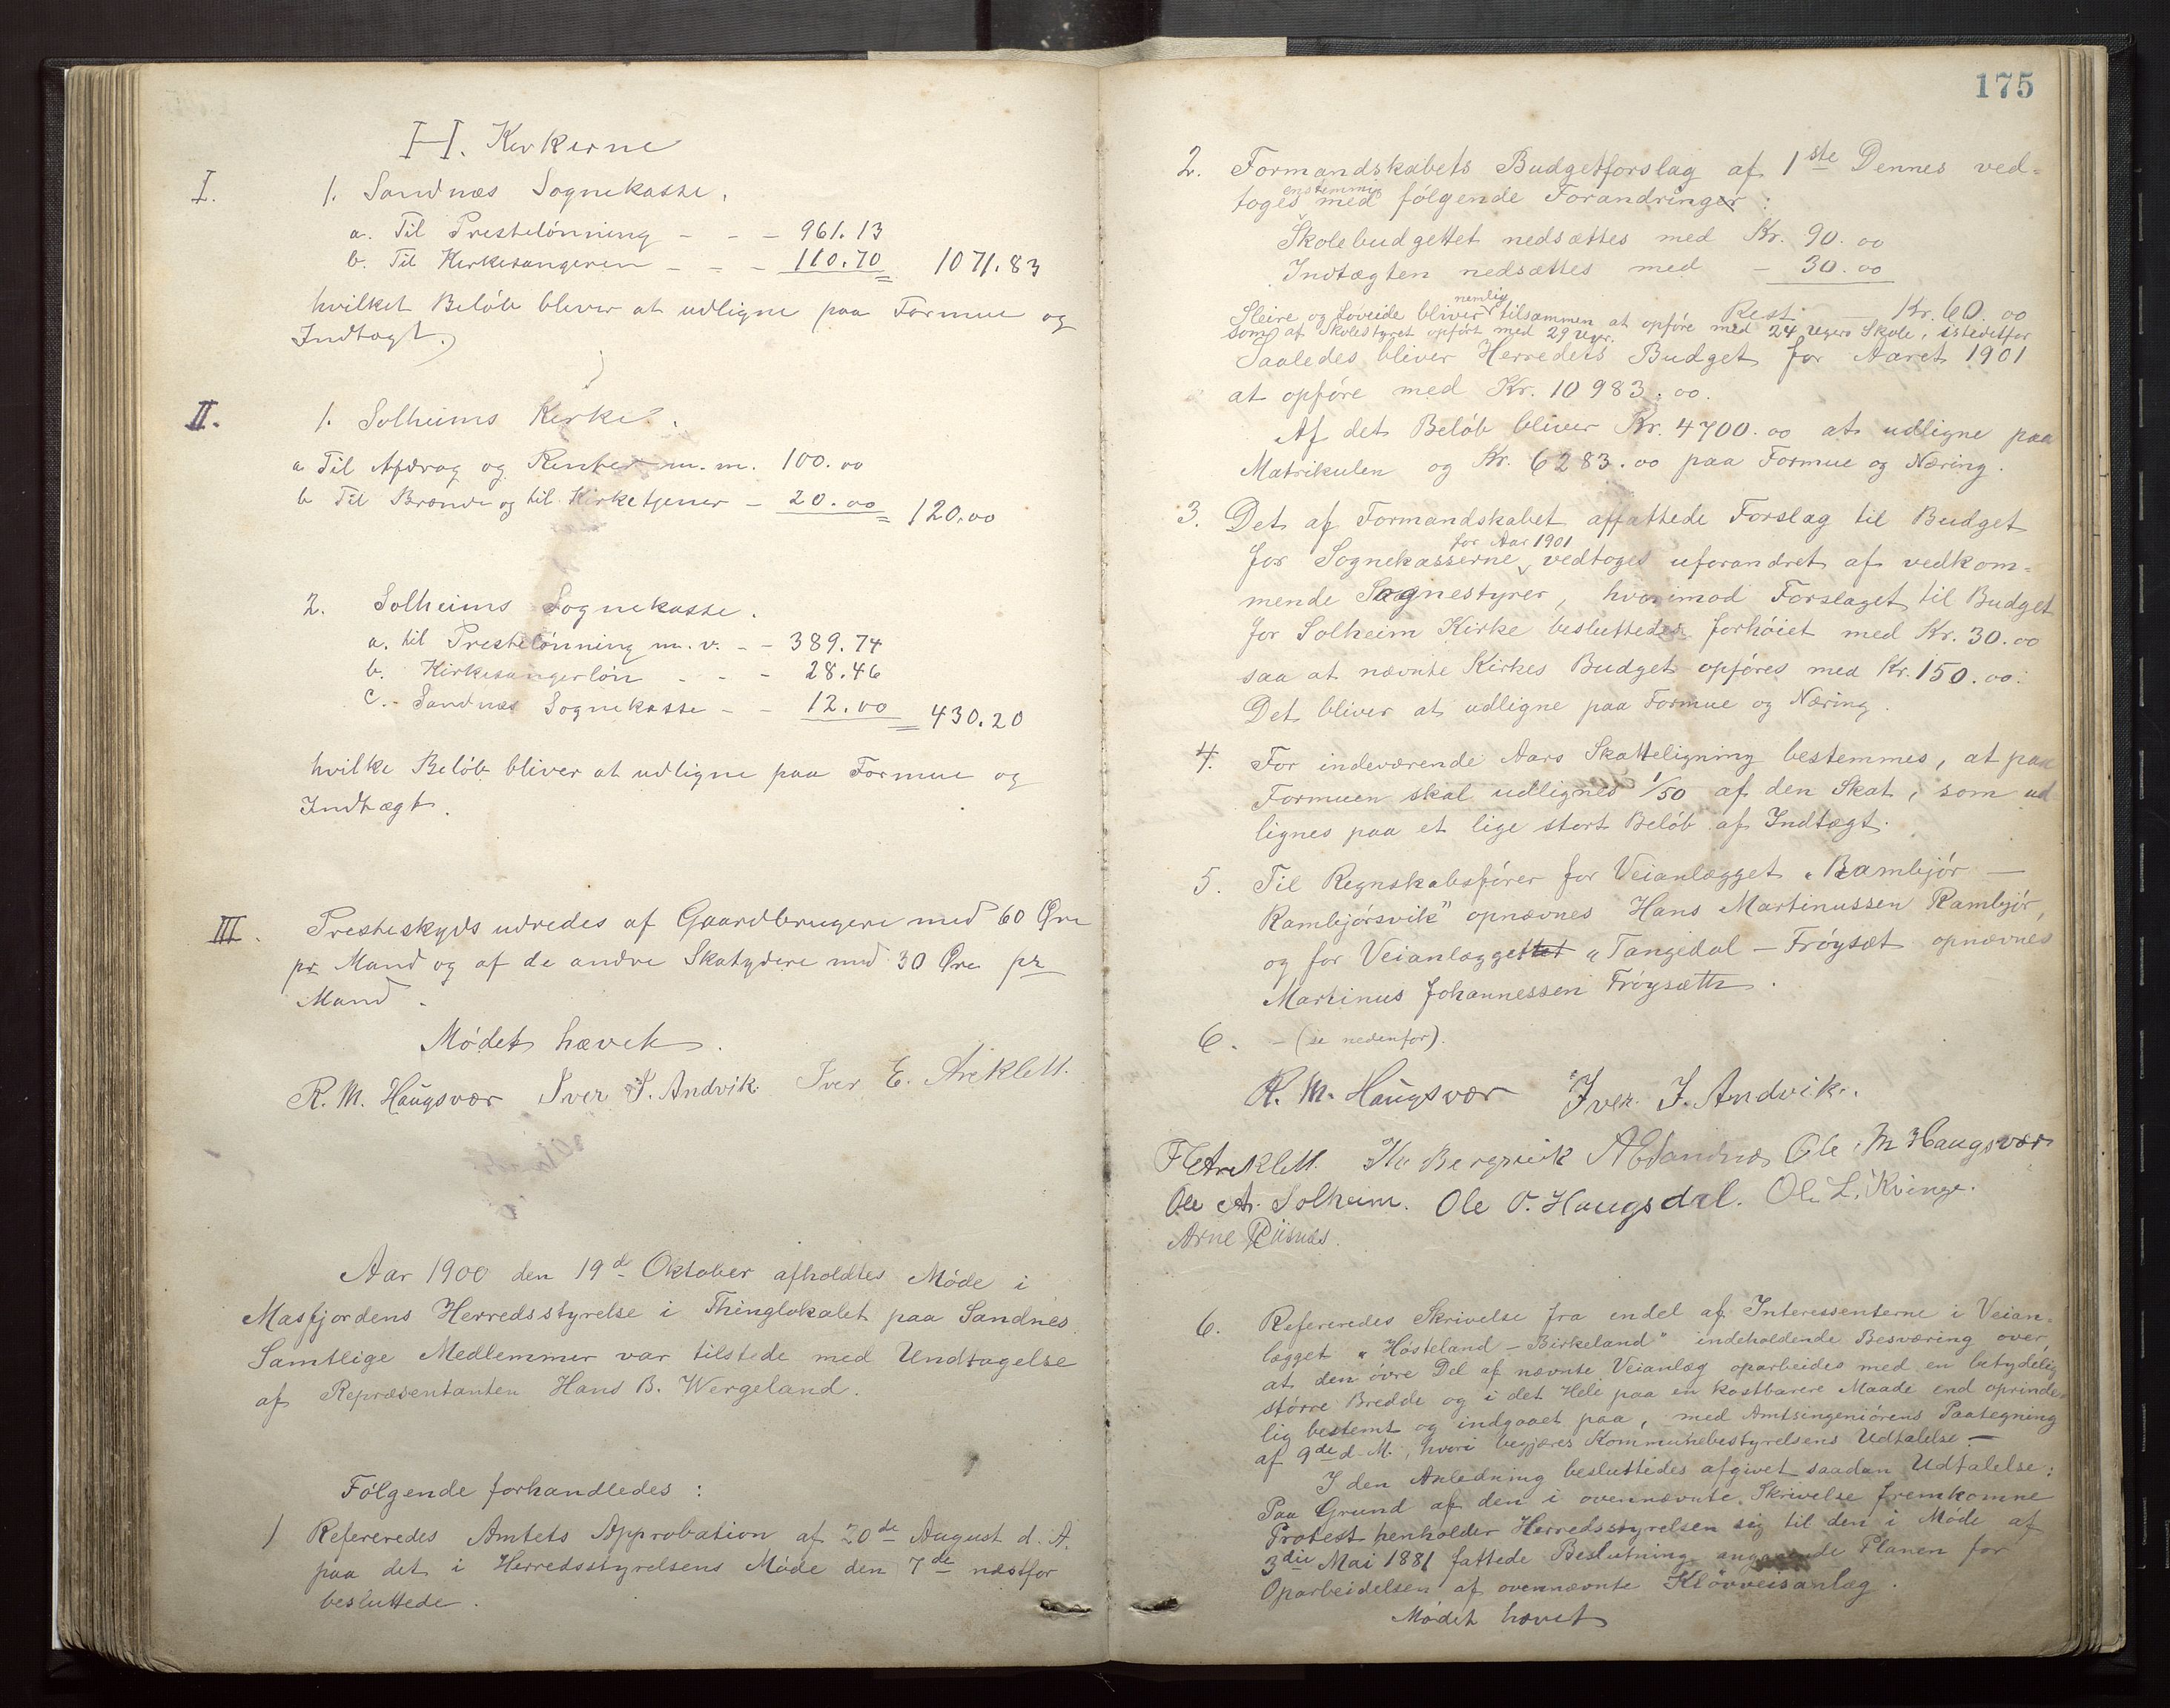 H. Kirkerne
I. 1. Sandnæs Sognekasse.
a. Til Prestelønning - - - 961.13
b. Til Kirkesangeren - - - 110.70 1071.83
hvilket Beløb bliver at udligne paa Formue og
Indtægt.
II. 1. Solheims Kirke.
a Til Afdrag og Renter m.m. 100.00
b Til Brænde og til Kirketjener - 20.00 120.00
2. Solheims Sognekasse.
a. til Prestelønning m.v. - - 389.74
b. Kirkesangerløn - - - 28.46
c. Sandnæs Sognekasse - - 12.00 430.20
hvilke Beløb bliver at udligne paa Formue og
Indtægt.
III. Presteskyds udredes af Gaardbrugere med 60 Øre
pr Mand og af de andre Skatydere med 30 Øre pr
Mand.
Mødet hævet.
R. M. Haugsvær Iver I. Andvik. Iver E. Areklett.
Aar 1900 den 19d Oktober afholdtes Møde i
Masfjordens Herredsstyrelse i Thinglokalet paa Sandnes
Samtlige Medlemmer var tilstede med Undtagelse
af Repræsentanten Hans B. Wergeland.
Følgende forhandledes:
1 Refereredes Amtets Approbation af 20de August d. A.
paa det i Herredsstyrelsens Møde den 7de næstfør
besluttede.
175
2. Formandskabets Budgetforslag af 1ste Dennes ved-
enstemmig
toges med følgende Forandringer:
Skolebudgettet nedsættes med Kr. 90.00
Indtægten nedsættes med - 30.00
Rest - Kr. 60.00
nemlig
Sleire og Løveide bliver tilsammen at opføre med 24 Ugers Skole, istedetfor
som af Skolestyret opført med 29 Uger.
Saaledes bliver Herredets Budget for Aaret 1901
at opføre med Kr. 10983.00.
Af det Beløb bliver Kr. 4700.00 at udligne paa
Matrikulen og Kr. 6283.00 paa Formue og Næring.
3. Det af Formandskabet affattede Forslag til Budget
for Aar 1901
for Sognekasserne vedtoges uforandret af vedkom-
mende Sognestyrer, hvorimod Forslaget til Budget
for Solheim Kirke besluttedes forhøiet med Kr. 30.00
saa at nævnte Kirkes Budget opføres med Kr. 150.00.
Det bliver at udligne paa Formue og Næring.
4. For indeværende Aars Skatteligning bestemmes, at paa
Formuen skal udlignes 1/50 af den Skat, som ud
lignes paa et lige stort Beløb af Indtægt.
5. Til Regnskabsfører for Veianlægget „Rambjør -
Rambjørsvik" opnævnes Hans Martinussen Rambjør,
og for Veianlægget „Tangedal - Frøyset opnævnes
Martinus Johannessen Frøysætt.
6. - (se nedenfor).
R. M. Haugsvær Iver I. Andvik.
I E Areklett. Bergsvik A E Sandnæs Ole M Haugsvær
Ole A. Solheim. Ole O. Haugsdal. Ole L. Kvinge.
Arne Riisnæs.
6. Refereredes Skrivelse fra endel af Interessenterne i Veian-
lægget „Høsteland - Birkeland" indeholdende Besværing over,
at den øvre Del af nævnte Veianlæg oparbeides med en betydelig
større Bredde og i det Hele paa en kostbarere Maade end oprinde-
lig bestemt og indgaaet paa, med Amtsingeniørens Paategning
af 9de d. M., hvori begjæres Kommunebestyrelsens Udtalelse. -
I den Anledning besluttedes afgivet saadan Udtalelse:
Paa Grund af den i ovennævnte Skrivelse fremkomne
Protest henholder Herredsstyrelsen sig til den i Møde af
3die Mai 1881 fattede Beslutning angaaende Planen for
Oparbeidelsen af ovennævnte Kløvveisanlæg.
Mødet hævet